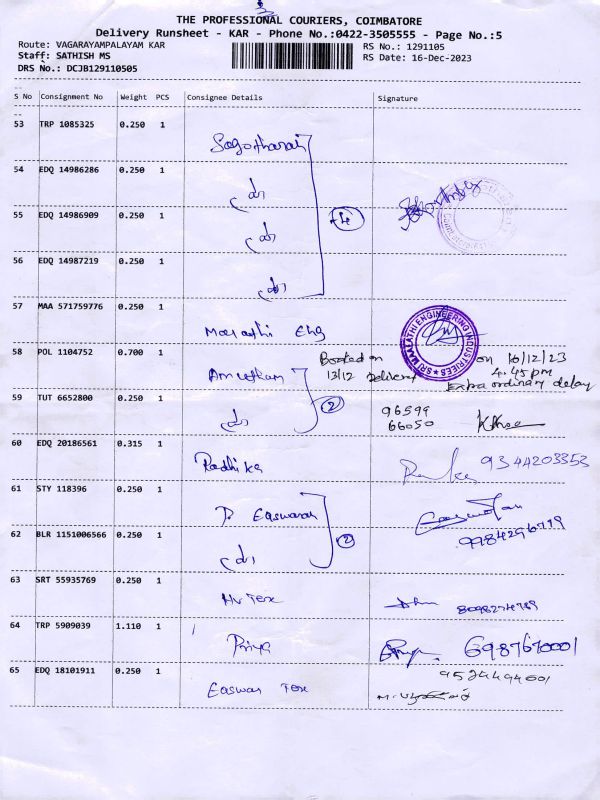 THE PROFESSIONAL COURIERS, COIMBATORE
Delivery Runsheet - KAR - Phone No.:0422-3505555 - Page No.:5
Route: VAGARAYAMPALAYAM KAR
RS No.: 1291105
Staff: SATHISH MS
RS Date: 16-Dec-2023
DRS No.: DCJB129110505
S No Consignment No Weight PCS Consignee Details Signature
53 TRP 1085325 0.250 1
54 EDQ 14986286 0.250 1
55 EDQ 14986909 0.250 1
56 EDQ 14987219 0.250 1
57 MAA 571759776 0.250 1 Eng
SRI MAALATHI ENGINEERING INDUSTRIES
58 POL 1104752 0.700 1 Booked on
13/12 Delivery on 16/12/23
4.45pm
Extra ordinary delay
59 TUT 6652800 0.250 1 2 96599
66050
60 EDQ 20186561 0.315 1 Radhika 9344203353
61 STY 118396 0.250 1 P. Easwaran
62 BLR 1151006566 0.250 1 2 9984296719
63 SRT 55935769 0.250 1 Tex 8098274789
64 TRP 5909039 1.110 1 Priya 6987670001
65 EDQ 18101911 0.250 1 Easwar Tex